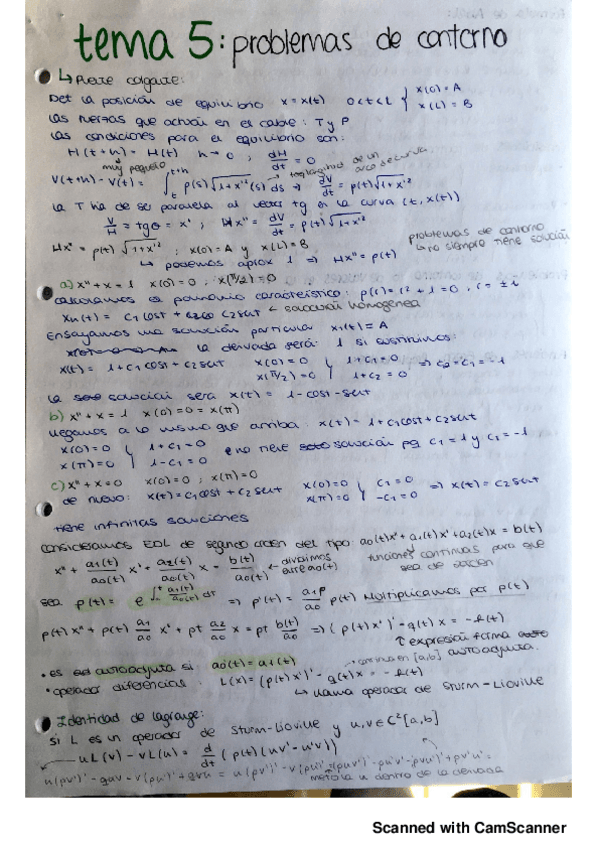 tema 5: problemas de contorno
↳ Puente colgante:
Det la posición de equilibrio x=x(t) 0<t<L { x(0)=A
x(L)=B
Las fuerzas que actúan en el cable: T y P
Las condiciones para el equilibrio son:
H(t+h) = H(t) h→0, dH/dt = 0
muy pequeño → longitud de un arco de curva
V(t+h) - V(t) = ∫_t^{t+h} p(s)√(1+x'²(s)) ds ⇒ dV/dt = p(t)√(1+x'²)
La T ha de ser paralela al vector tg en la curva (t, x(t))
V/H = tgθ = x' ; Hx" = dV/dt = p(t)√(1+x'²)
Hx" = p(t)√(1+x'²) ; x(0)=A y x(L)=B
↳ podemos aprox 1 ⇒ Hx" = p(t)
problemas de contorno
↳ no siempre tiene solución
a) x"+x=1 x(0)=0 ; x(π/2)=0
Calculamos el polinomio característico: p(r)=r²+1=0, r=±i
xh(t) = c1 cost + c2 sent ← solución homogénea
Ensayamos una solución particular x1(t)=A
la derivada será: 1 si sustituimos:
x(t) = 1+c1 cost + c2 sent x(0)=0 } 1+c1=0 ⇒ c2=c1=-1
x(π/2)=0 } 1+c2=0
la solución será x(t) = 1-cost-sent
b) x"+x=1 x(0)=0=x(π)
llegamos a lo mismo que arriba: x(t) = 1+c1cost+c2sent
x(0)=0 } 1+c1=0
x(π)=0 } 1-c1=0 no tiene solución pq c1=1 y c1=-1
c) x"+x=0 x(0)=0 ; x(π)=0
de nuevo: x(t)=c1cost+c2sent x(0)=0 } c1=0 ⇒ x(t)=c2sent
x(π)=0 } -c1=0
tiene infinitas soluciones
Consideramos EDL de segundo orden del tipo: a0(t)x"+a1(t)x'+a2(t)x=b(t)
x" + a1(t)/a0(t) x' + a2(t)/a0(t) x = b(t)/a0(t) ← dividimos entre a0(t)
funciones continuas para que sea de
sea p(t) = e^∫^t a1(τ)/a0(τ) dτ ⇒ p'(t) = a1/a0 p(t) Multiplicamos por p(t)
p(t)x" + p(t) a1/a0 x' + pt a2/a0 x = pt b(t)/a0 ⇒ (p(t)x')'-q(t)x = -f(t)
↑ expresión forma autoadjunta.
• es autoadjunta si a0'(t)=a1(t)
continua en [a,b]
• operador diferencias: L(x)=(p(t)x')'-q(t)x = -f(t)
↳ llama operador de Sturm-Liouville
Identidad de lagrange:
si L es un operador de Sturm-Liouville y u,v∈C²[a,b]
uL(v) - vL(u) = d/dt (p(t)(uv'-u'v))
u(pv')'-quv-v(pu')'+qvu = u(pv')'-v(pu')' = (puv')'-pu'v'-(pvu')'+pv'u' =
meto la u dentro de la derivada
Scanned with CamScanner